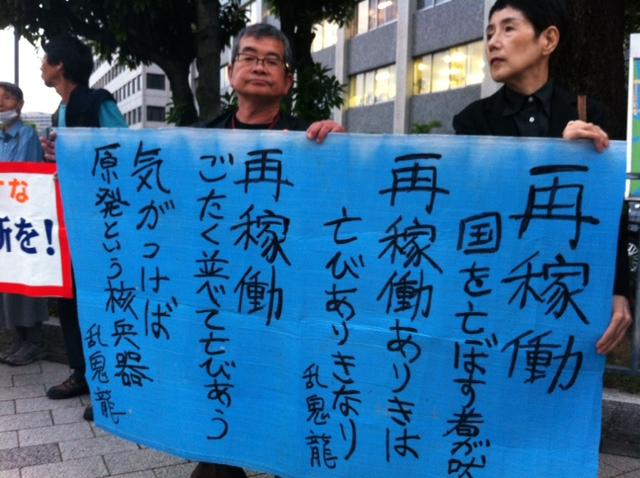 再稼働
国を亡ぼす者が吠
再稼働ありきは
亡びありきなり
乱鬼龍
再稼働
ごたく並べて亡びあう
気がつけば
原発という核兵器
乱鬼龍
な
を!